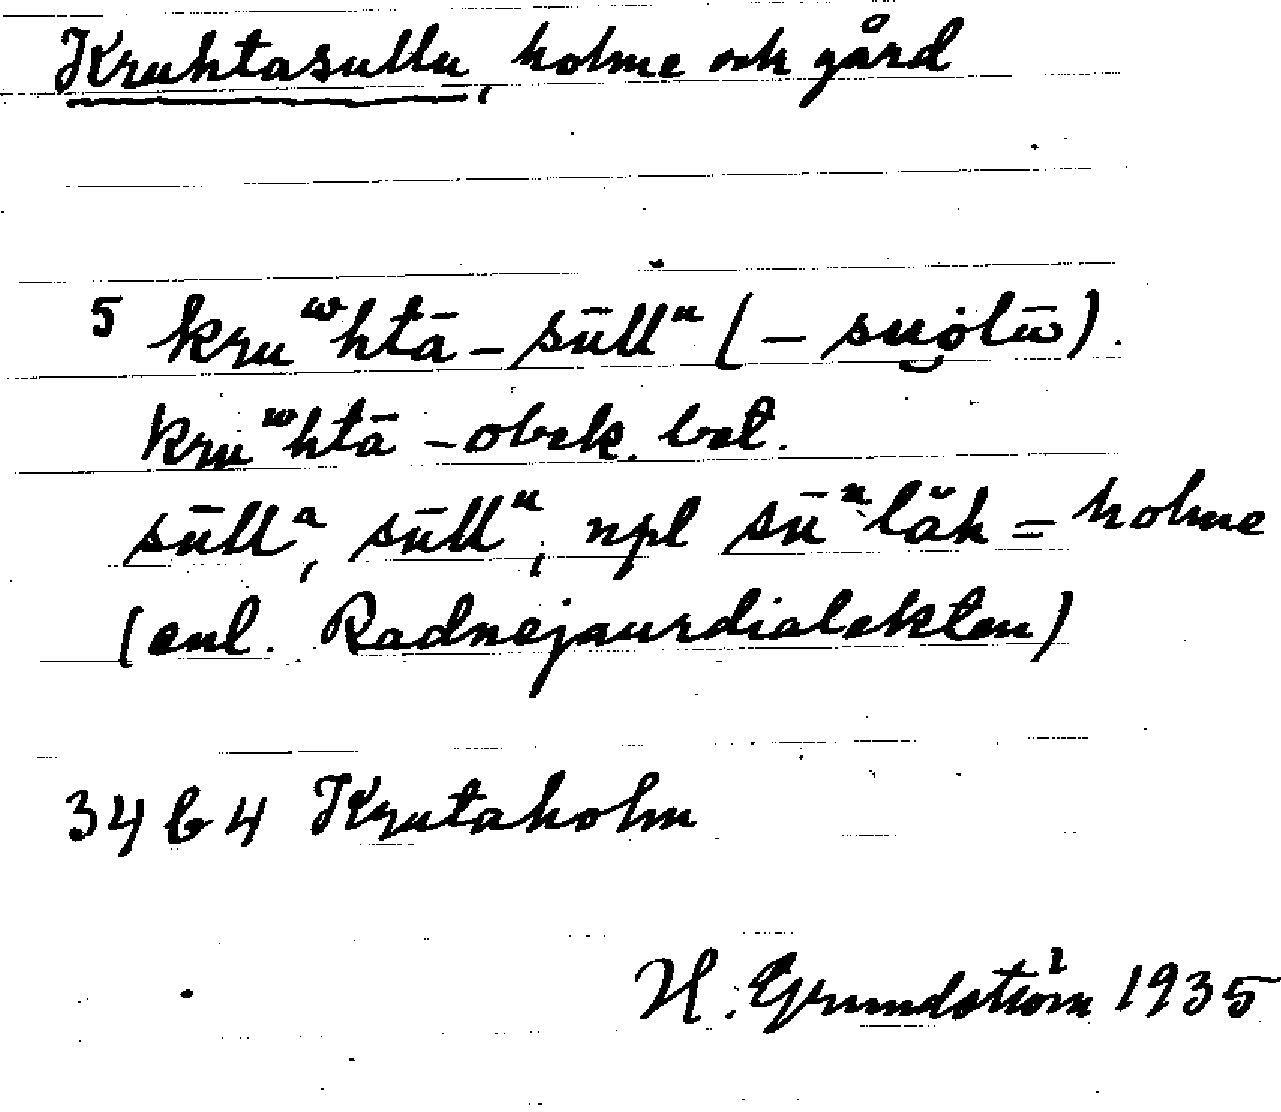 Kruhtasullu, holme och gård
5 kruʷhtā-sūllᵘ (-suo̧lū).
kruʷhtā - obek. bet.
sūllᵃ, sūllᵘ, npl sūᵘlǎh = holme
(enl. Radnejaurdialekten)
34 b 4 Krutaholm
H. Grundström 1935